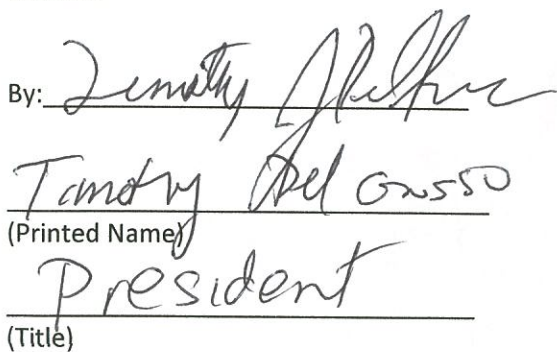 By: Timothy
Timothy Del Grosso
(Printed Name)
President
(Title)